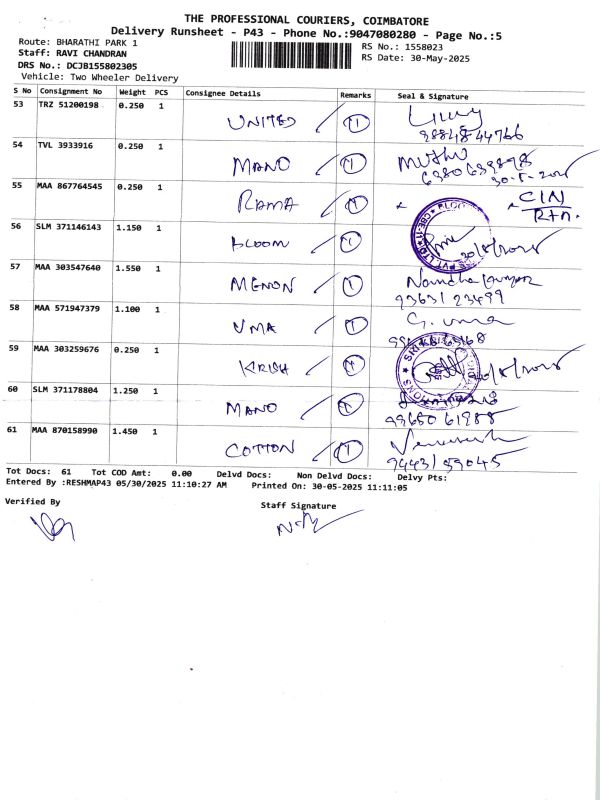 THE PROFESSIONAL COURIERS, COIMBATORE
Delivery Runsheet - P43 - Phone No.:9047080280 - Page No.:5
Route: BHARATHI PARK 1
RS No.: 1558023
Staff: RAVI CHANDRAN
RS Date: 30-May-2025
DRS No.: DCJB155802305
Vehicle: Two Wheeler Delivery
S No Consignment No Weight PCS Consignee Details Remarks Seal & Signature
53 TRZ 51200198 0.250 1 UNITED
54 TVL 3933916 0.250 1 MANO MUTHU
6380639898
55 MAA 867764545 0.250 1 RAMA CIN
Rtn.
56 SLM 371146143 1.150 1 BLOOM
57 MAA 303547640 1.550 1 MENON
93631 23499
58 MAA 571947379 1.100 1 UMA G. uma
59 MAA 303259676 0.250 1 KRISH
60 SLM 371178804 1.250 1 MANO
99650 61988
61 MAA 870158990 1.450 1 COTTON
94431 59045
Tot Docs: 61 Tot COD Amt: 0.00 Delvd Docs: Non Delvd Docs: Delvy Pts:
Entered By :RESHMAP43 05/30/2025 11:10:27 AM Printed On: 30-05-2025 11:11:05
Verified By
Staff Signature